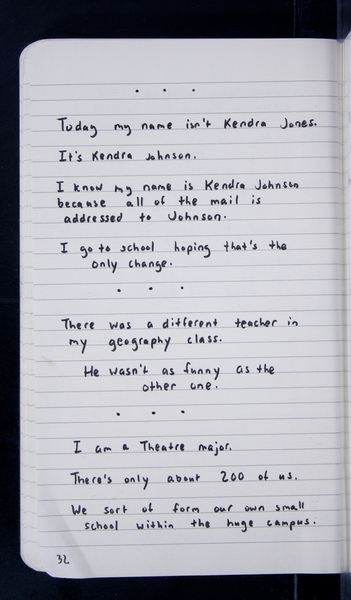 . . .
Today my name isn't Kendra Jones.
It's Kendra Johnson.
I know my name is Kendra Johnson
because all of the mail is
addressed to Johnson.
I go to school hoping that's the
only change.
. . .
There was a different teacher in
my geography class.
He wasn't as funny as the
other one.
. . .
I am a Theatre major.
There's only about 200 of us.
We sort of form our own small
school within the huge campus.
32